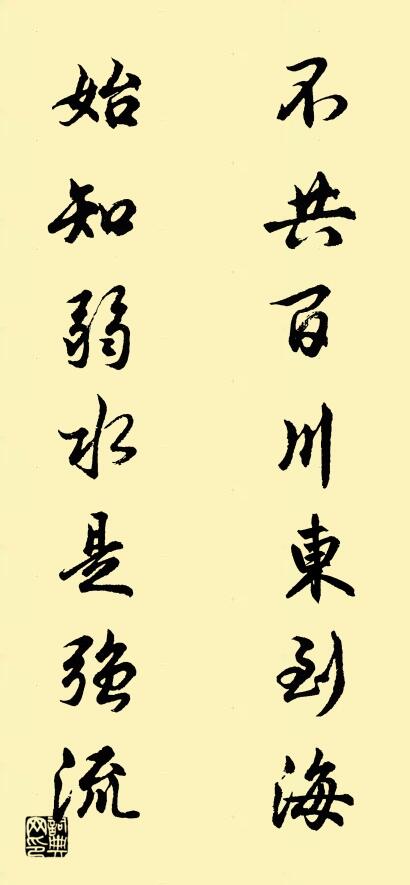 不共百川東到海
始知弱水是強流
詞典网印